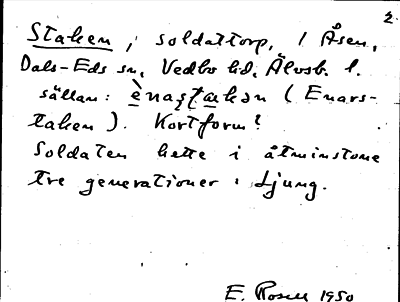 2
Staken, soldattorp, i Åsen,
Dals-Eds sn, Vedbo hd, Älvsb. l.
sällan: ènastakən (Enars-
taken). Kortform?
Soldaten hette i åtminstone
tre generationer: Ljung.
E. Rosell 1950